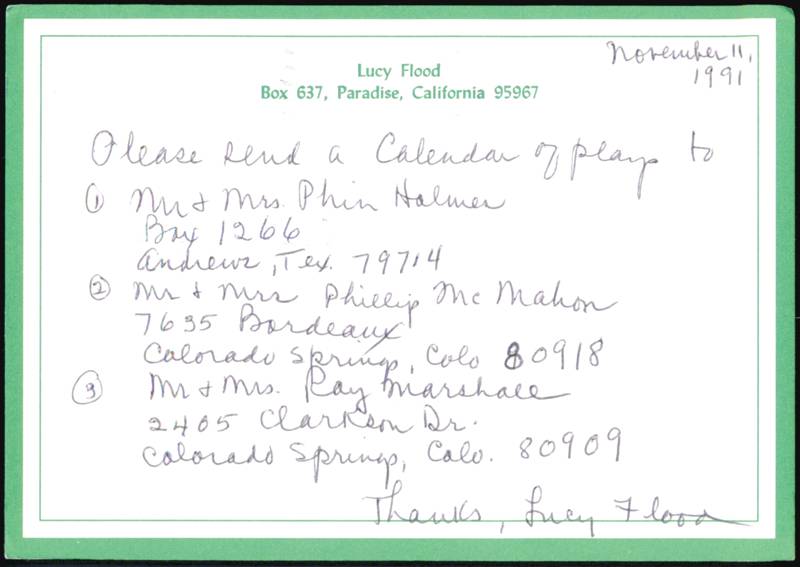 November 11,
1991
Lucy Flood
Box 637, Paradise, California 95967
Please send a Calendar of plays to
① Mr & Mrs. Phin Holmes
Box 1266
Andrews, Tex. 79714
② Mr & Mrs Phillip McMahon
7635 Bordeaux
Colorado Springs, Colo 80918
③ Mr & Mrs. Ray Marshall
2405 Clarkson Dr.
Colorado Springs, Colo. 80909
Thanks, Lucy Flood